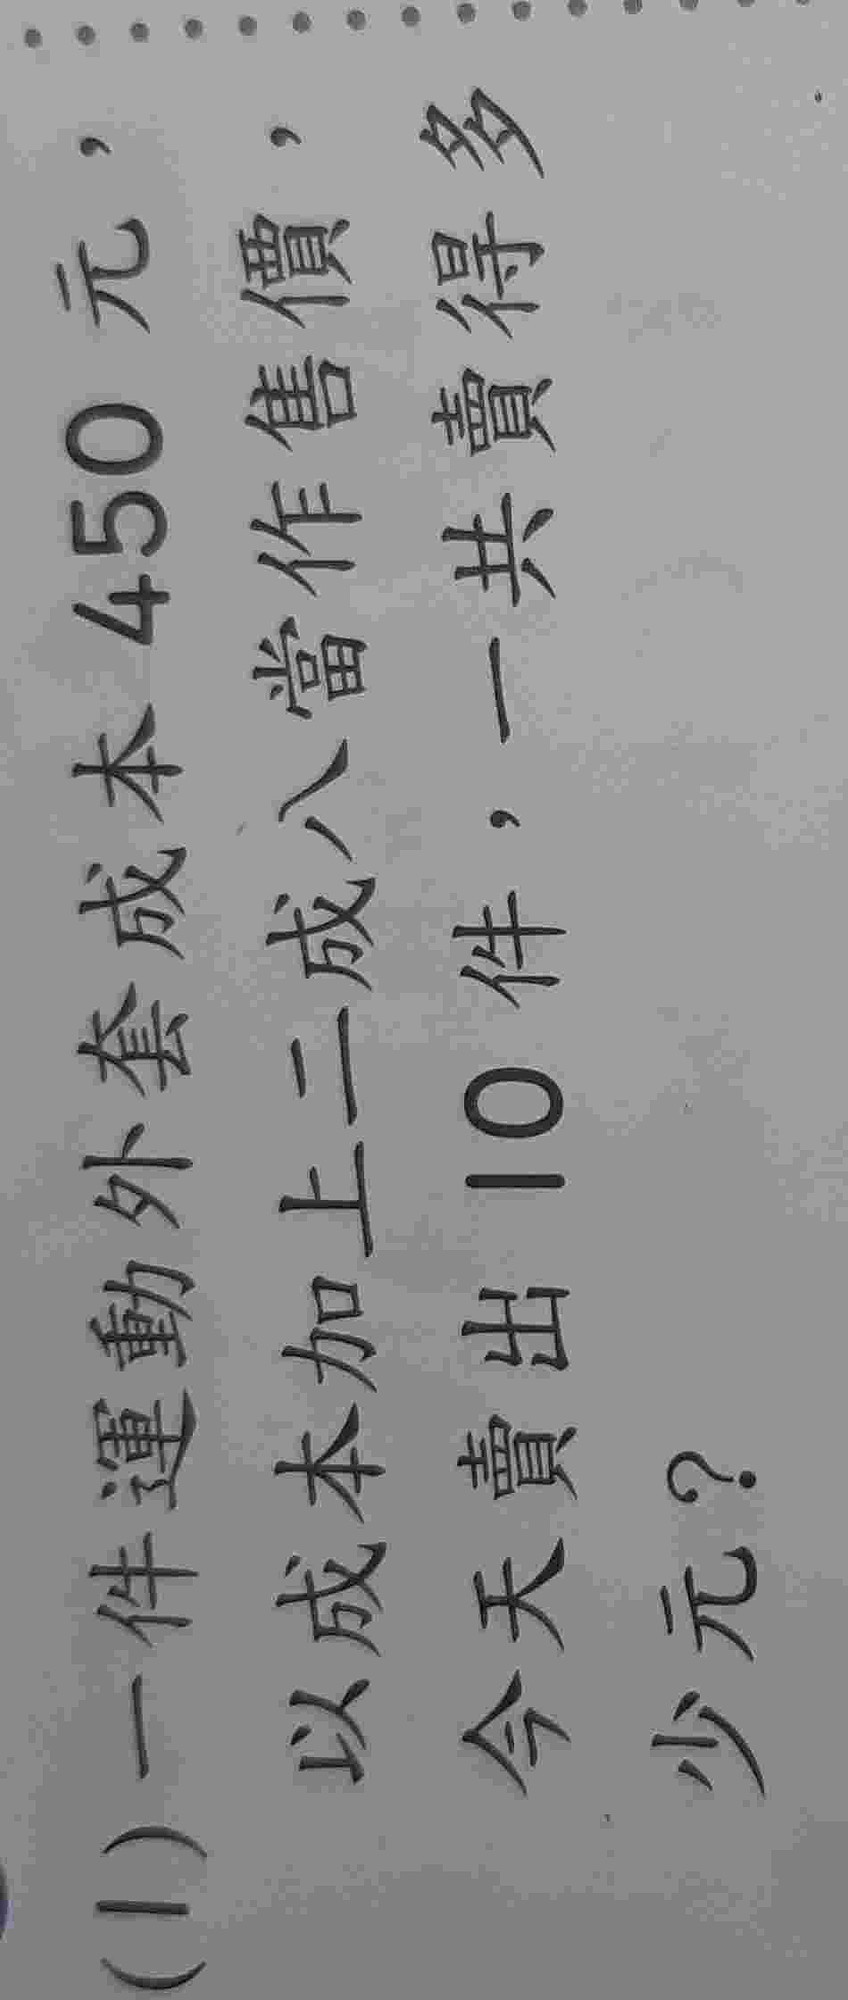 (1)一件運動外套成本 450 元，
以成本加上二成八當作售價，
今天賣出 10 件，一共賣得多
少元？